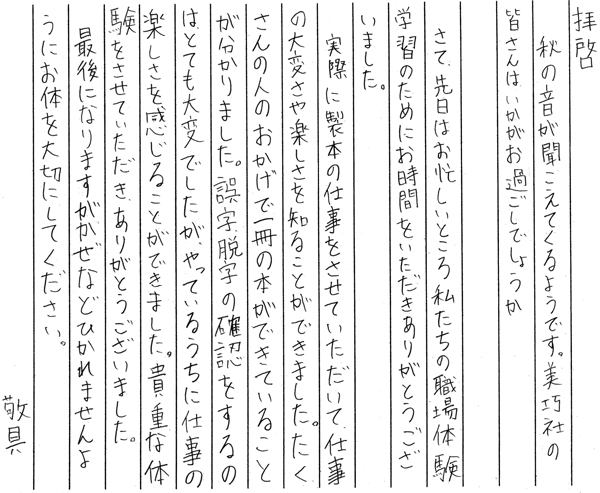 拝啓
秋の音が聞こえてくるようです。美巧社の
皆さんはいかがお過ごしでしょうか
さて、先日はお忙しいところ私たちの職場体験
学習のためにお時間をいただきありがとうござ
いました。
実際に製本の仕事をさせていただいて、仕事
の大変さや楽しさを知ることができました。たく
さんの人のおかげで一冊の本ができていること
が分かりました。誤字、脱字の確認をするの
はとても大変でしたが、やっているうちに仕事の
楽しさを感じることができました。貴重な体
験をさせていただき、ありがとうございました。
最後になりますがかぜなどひかれませんよ
うにお体を大切にしてください。
敬具